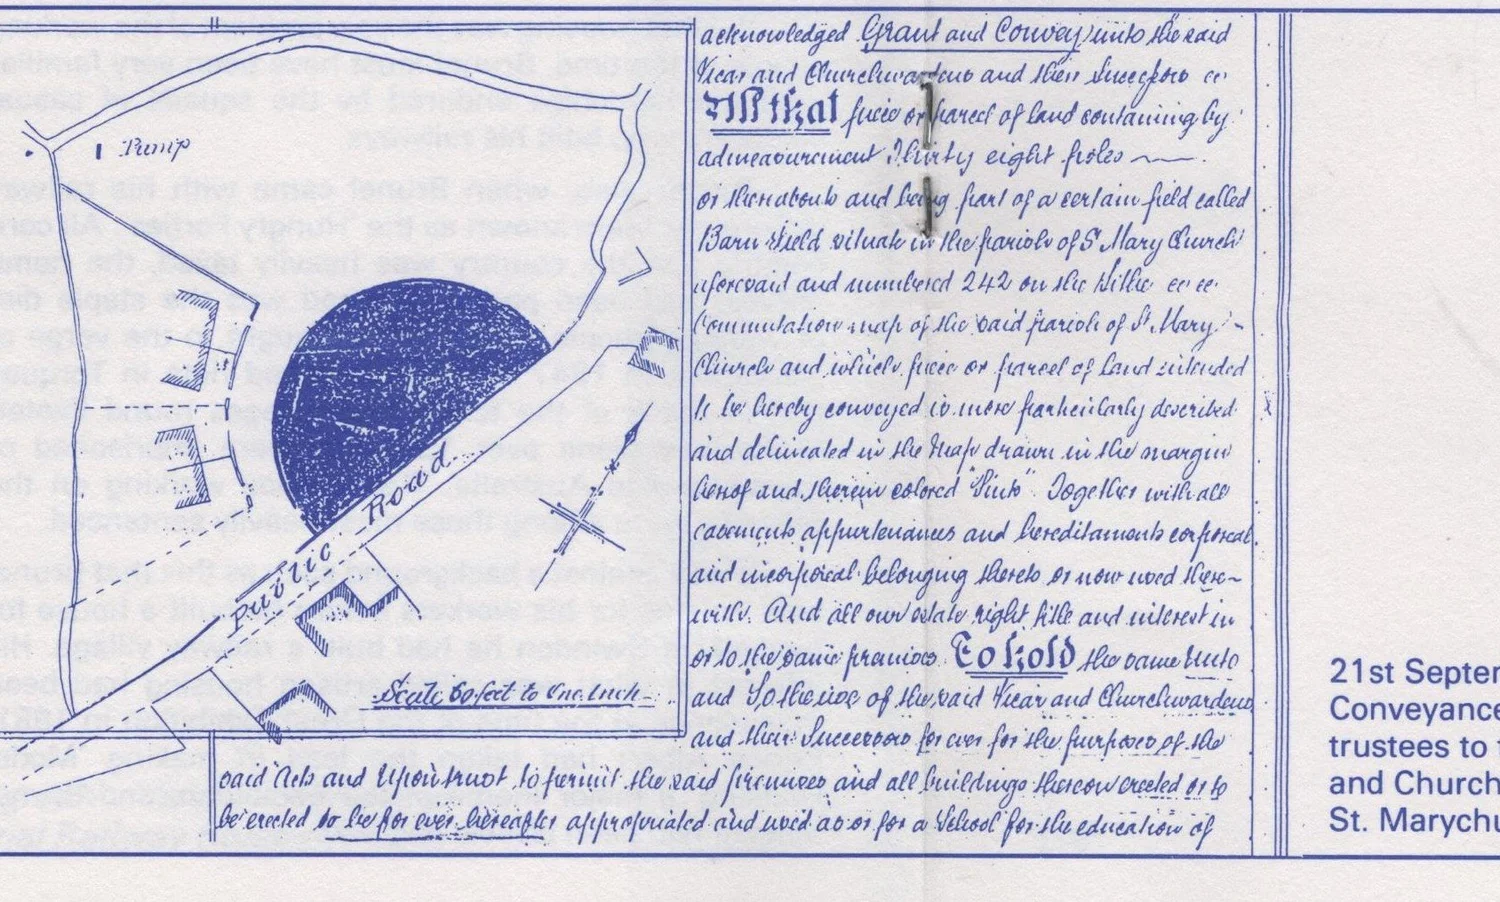 Pump
Public Road
Scale 60 feet to One Inch.
acknowledged Grant and Convey unto the said
Vicar and Churchwardens and their Successors
All that piece or parcel of land containing by
admeasurement Thirty eight poles
or thereabouts and being part of a certain field called
Barn Field situate in the parish of St Mary Church
aforesaid and numbered 242 on the Tithe
Commutation map of the said parish of St Mary
Church and which piece or parcel of land intended
to be hereby conveyed is more particularly described
and delineated in the Map drawn in the margin
hereof and therein colored "Pink" Together with all
easements appurtenances and hereditaments corporeal
and incorporeal belonging thereto or now used there-
with. And all our estate right title and interest in
or to the same premises. To hold the same Unto
and To the use of the said Vicar and Churchwardens
and their Successors for ever for the purposes of the
said Acts and Upon trust to permit the said premises and all buildings thereon erected or to
be erected to be for ever hereafter appropriated and used as or for a School for the education of
21st Septem
Conveyance
trustees to
and Church
St. Marychu